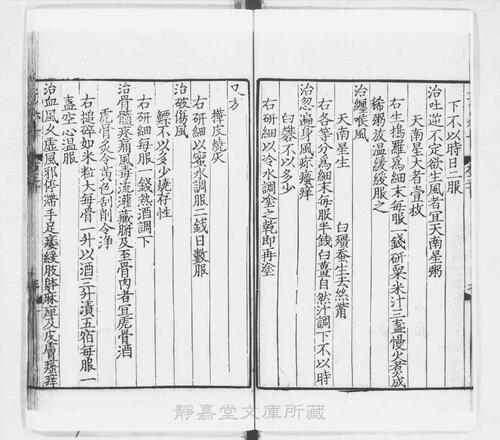 下不以時日二服
治吐逆不定欲生風者宜天南星粥
天南星大者壹枚
右生擣羅爲細末每服一錢研粟米汁三盞慢火煮成
稀粥放温緩緩服之
治纏喉風
天南星生　白殭蚕生去絲觜
右各等分爲細末每服半錢白薑自然汁調下不以時
治忽遍身風疹瘙痒
白礬不以多少
右研細以冷水調塗之乾即再塗
又方
樺皮燒灰
右研細以蜜水調服二錢日數服
治破傷風
鰾不以多少燒存性
右研細每服一錢熱酒調下
治骨髓疼痛風毒流灌藏腑及至骨肉者宜虎骨酒
虎骨炙令黄色刮削令淨
右搥碎如米粒大每骨一升以酒三升漬五宿每服一
盞空心温服
治血風久虚風邪停滯手足痿緩肢躰麻痺及皮膚瘙痒
靜嘉堂文庫所藏